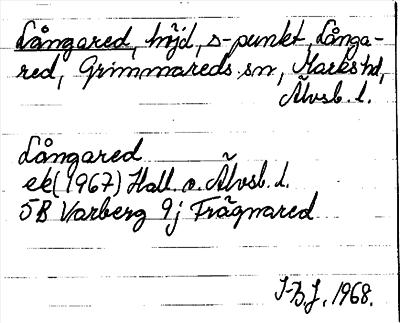 Långared, höjd, s-punkt, Långa-
red, Grimmareds sn, Marks hd,
Älvsb. l.
Långared
ek (1967) Hall. o. Älvsb. l.
5B Varberg 9j Frägnared
I-B.J. 1968.